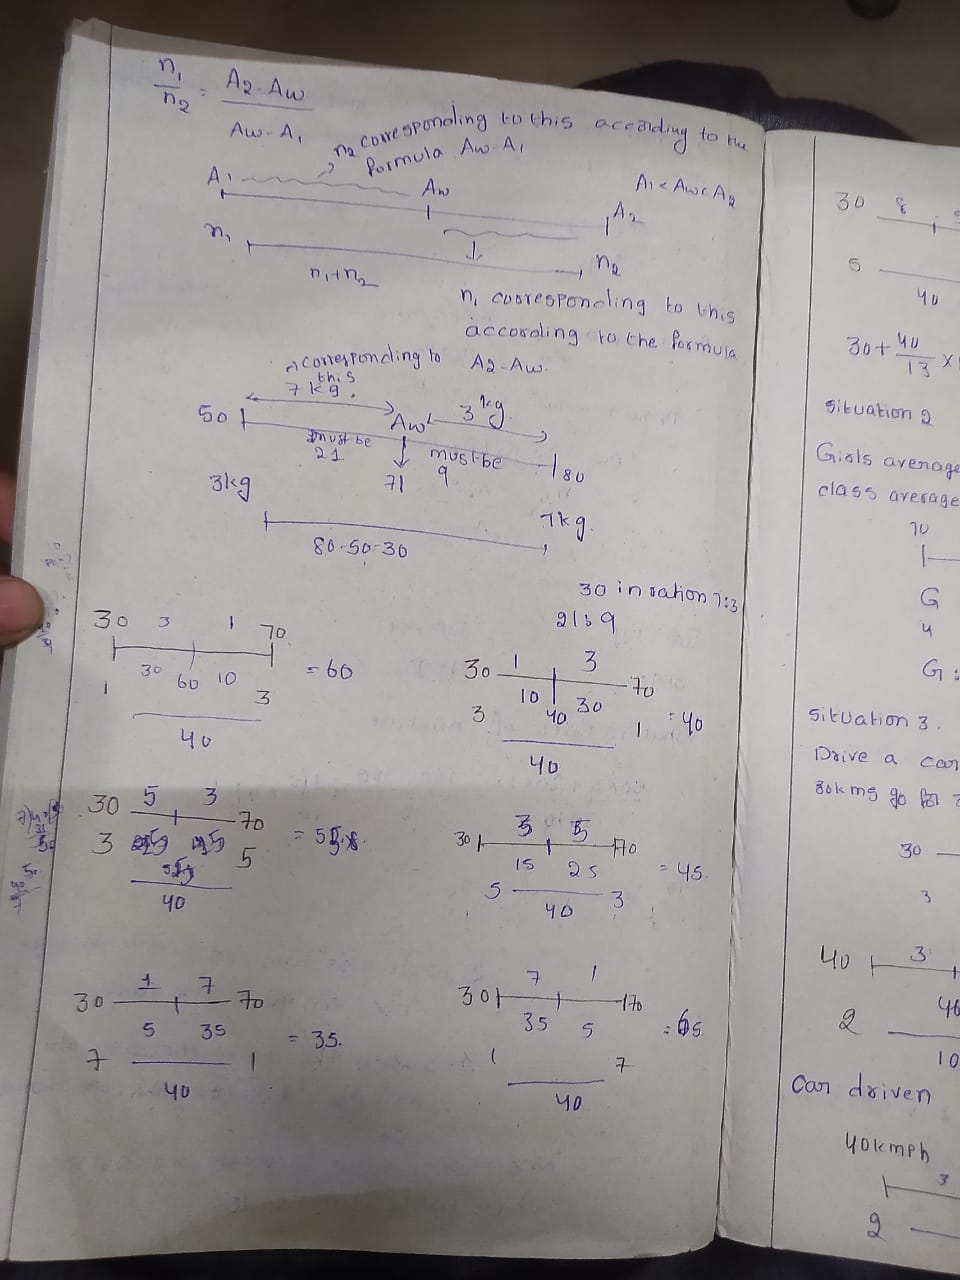 n₁/n₂ = A₂-Aw / Aw-A₁
n₂ corresponding to this according to the
formula Aw-A₁
A₁ Aw A₂
A₁<Aw<A₂
n₁ n₂
n₁+n₂
n₁ cooresponding to this
according to the formula
A₂-Aw.
corresponding to
this
7kg. 3kg.
50 Aw 80
must be
21
must be
9
71
3kg 7kg.
80-50=30
30 in ration 7:3
21:9
30 3 1 70
30 60 10
1 3
40
= 60
30 1 3 70
10 40 30
3 1
40
= 40
30 5 3 70
3 5
40
= 55
30 3 5 70
15 25
5 3
40
= 45.
30 1 7 70
5 35
7 1
40
= 35.
30 7 1 70
35 5
1 7
40
= 65.
30 8
5
40
30+40/13 ×
Situation 2
Girls average
class average
70
G
4
G:
Situation 3.
Drive a car
80kms go for
30
3
40 3
2
10
Car driven
40kmph
3
2